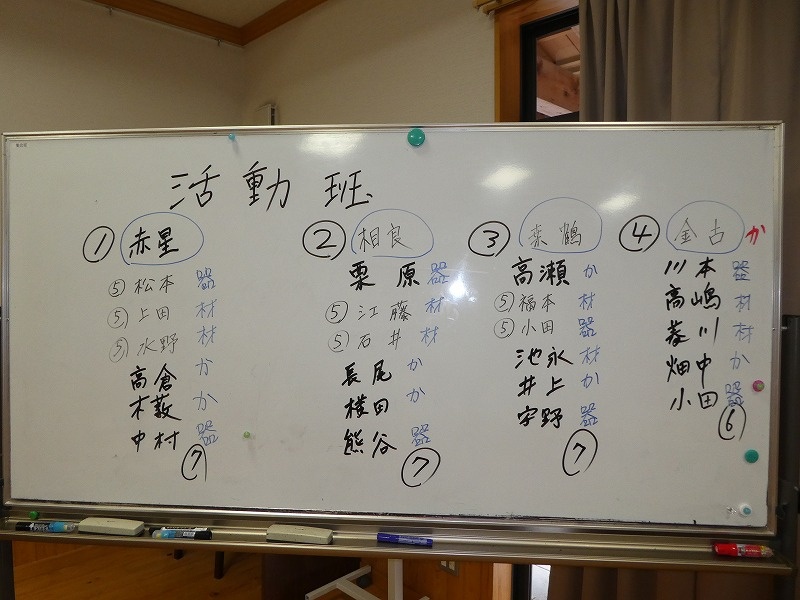 活動班
① 赤星
⑤ 松本 器
⑤ 上田 材
⑤ 水野 材
高倉 か
木藪 か
中村 器
⑦
② 相良
栗原 器
⑤ 江藤 材
⑤ 石井 材
長尾 か
横田 か
熊谷 器
⑦
③ 来鶴
高瀬 か
⑤ 福本 材
⑤ 小田 器
池永 材
井上 か
宇野 器
⑦
④ 金古 か
川本 器
高嶋 材
菱川 材
畑中 か
小田 器
⑥